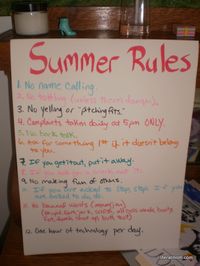 Summer Rules
1. No name calling.
2. No tattling (unless there's danger).
3. No yelling or "pitching fits."
4. Complaints taken daily at 5pm ONLY.
5. No back talk.
6. Ask for something 1st if it doesn't belong
to you.
7. If you get it out, put it away.
8. If you
9. No making fun of others.
10. If you are asked to stop, stop. If you
are asked to do, do.
11. No banned words
(stupid, jerk,
fat, dumb, shut up, butt,
12. One hour of technology per day.